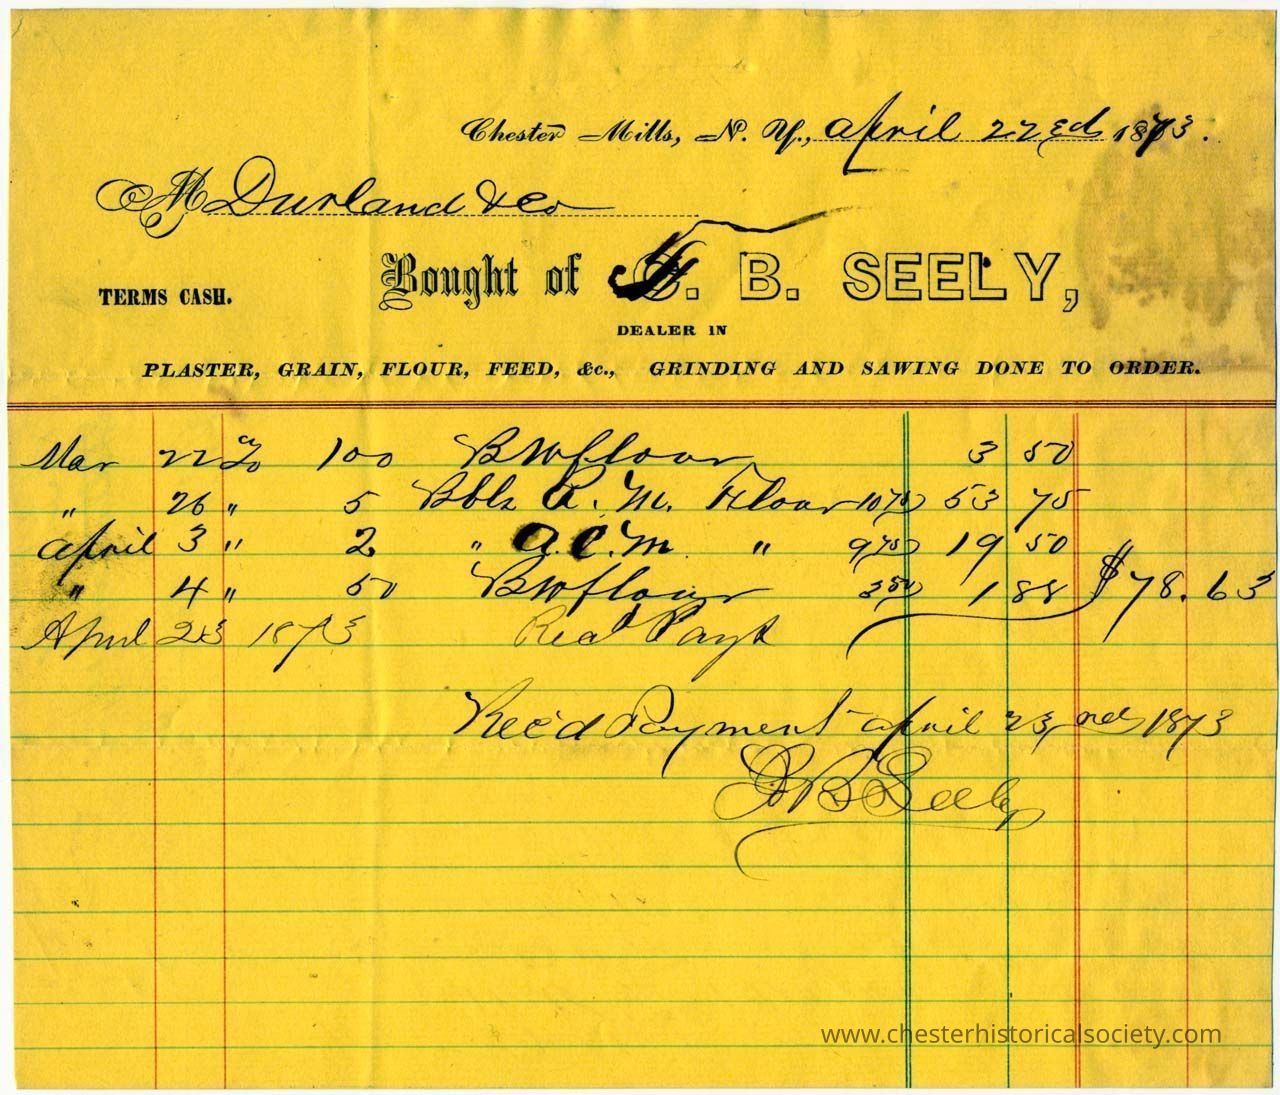 Chester Mills, N. Y., april 22ed 1873.
M Durland & Co
Bought of J. B. SEELY,
TERMS CASH.
DEALER IN
PLASTER, GRAIN, FLOUR, FEED, &c., GRINDING AND SAWING DONE TO ORDER.
Mar 22 To 100 BWflour 3 50
" 26 " 5 Bbls R. M. Flour 10 75 53 75
april 3 " 2 " a. C. M " 9 75 19 50
" 4 " 50 BWflour 3 50 1 88 $78.63
April 23 1873 Recd Payt
Rec'd Payment april 23 1873
B Seely
www.chesterhistoricalsociety.com